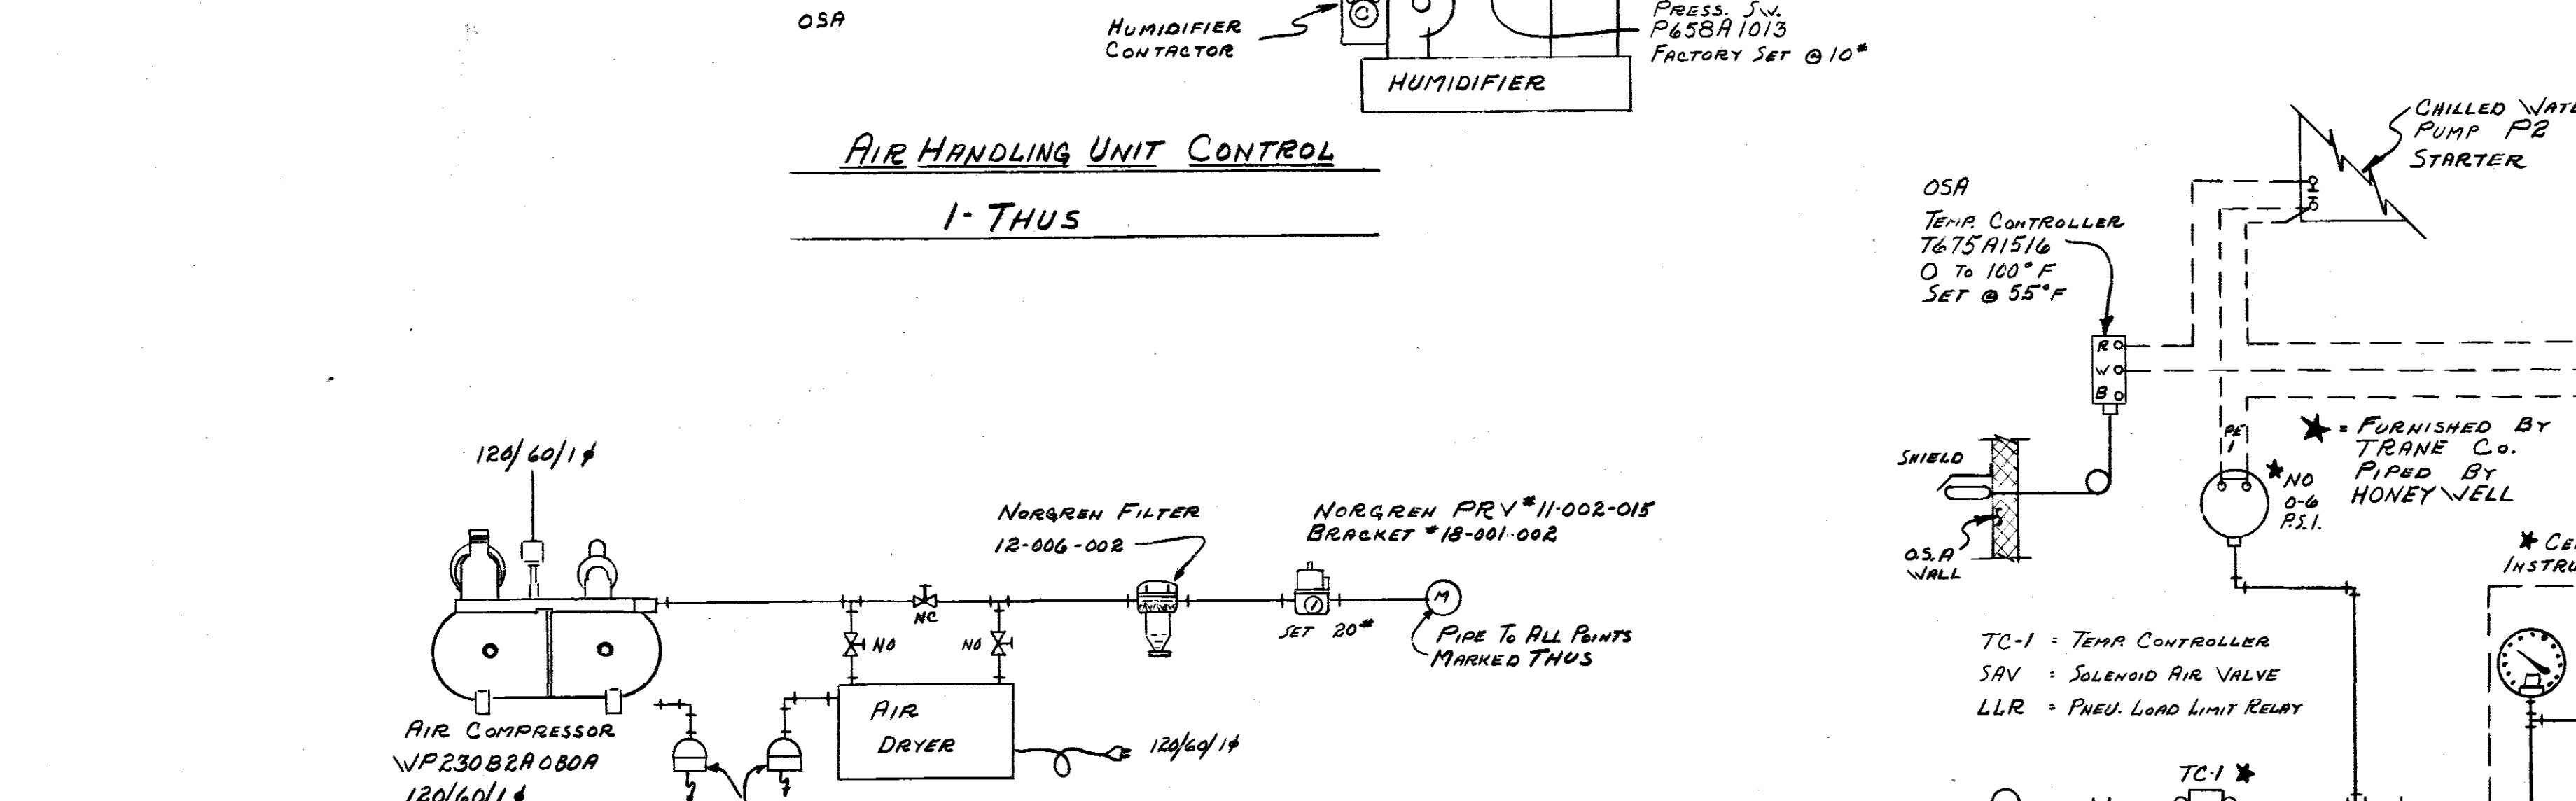 OSA
HUMIDIFIER
CONTACTOR
PRESS. SW.
P658A1013
FACTORY SET @ 10#
HUMIDIFIER
AIR HANDLING UNIT CONTROL
1- THUS
CHILLED WATE
PUMP P2
STARTER
OSA
TEMP. CONTROLLER
T675A1516
0 TO 100°F
SET @ 55°F
R
W
B
SHIELD
O.S.A
WALL
PE
1
★ = FURNISHED BY
TRANE CO.
PIPED BY
HONEYWELL
★ NO
0-6
P.S.I.
★ CE
INSTRU
120/60/1φ
NORGREN FILTER
12-006-002
NORGREN PRV #11-002-015
BRACKET #18-001-002
NC
NO
NO
SET 20#
M
PIPE TO ALL POINTS
MARKED THUS
AIR
DRYER
120/60/1φ
AIR COMPRESSOR
WP230B2A0B0A
120/60/1φ
TC-1 = TEMP. CONTROLLER
SAV = SOLENOID AIR VALVE
LLR = PNEU. LOAD LIMIT RELAY
TC-1 ★